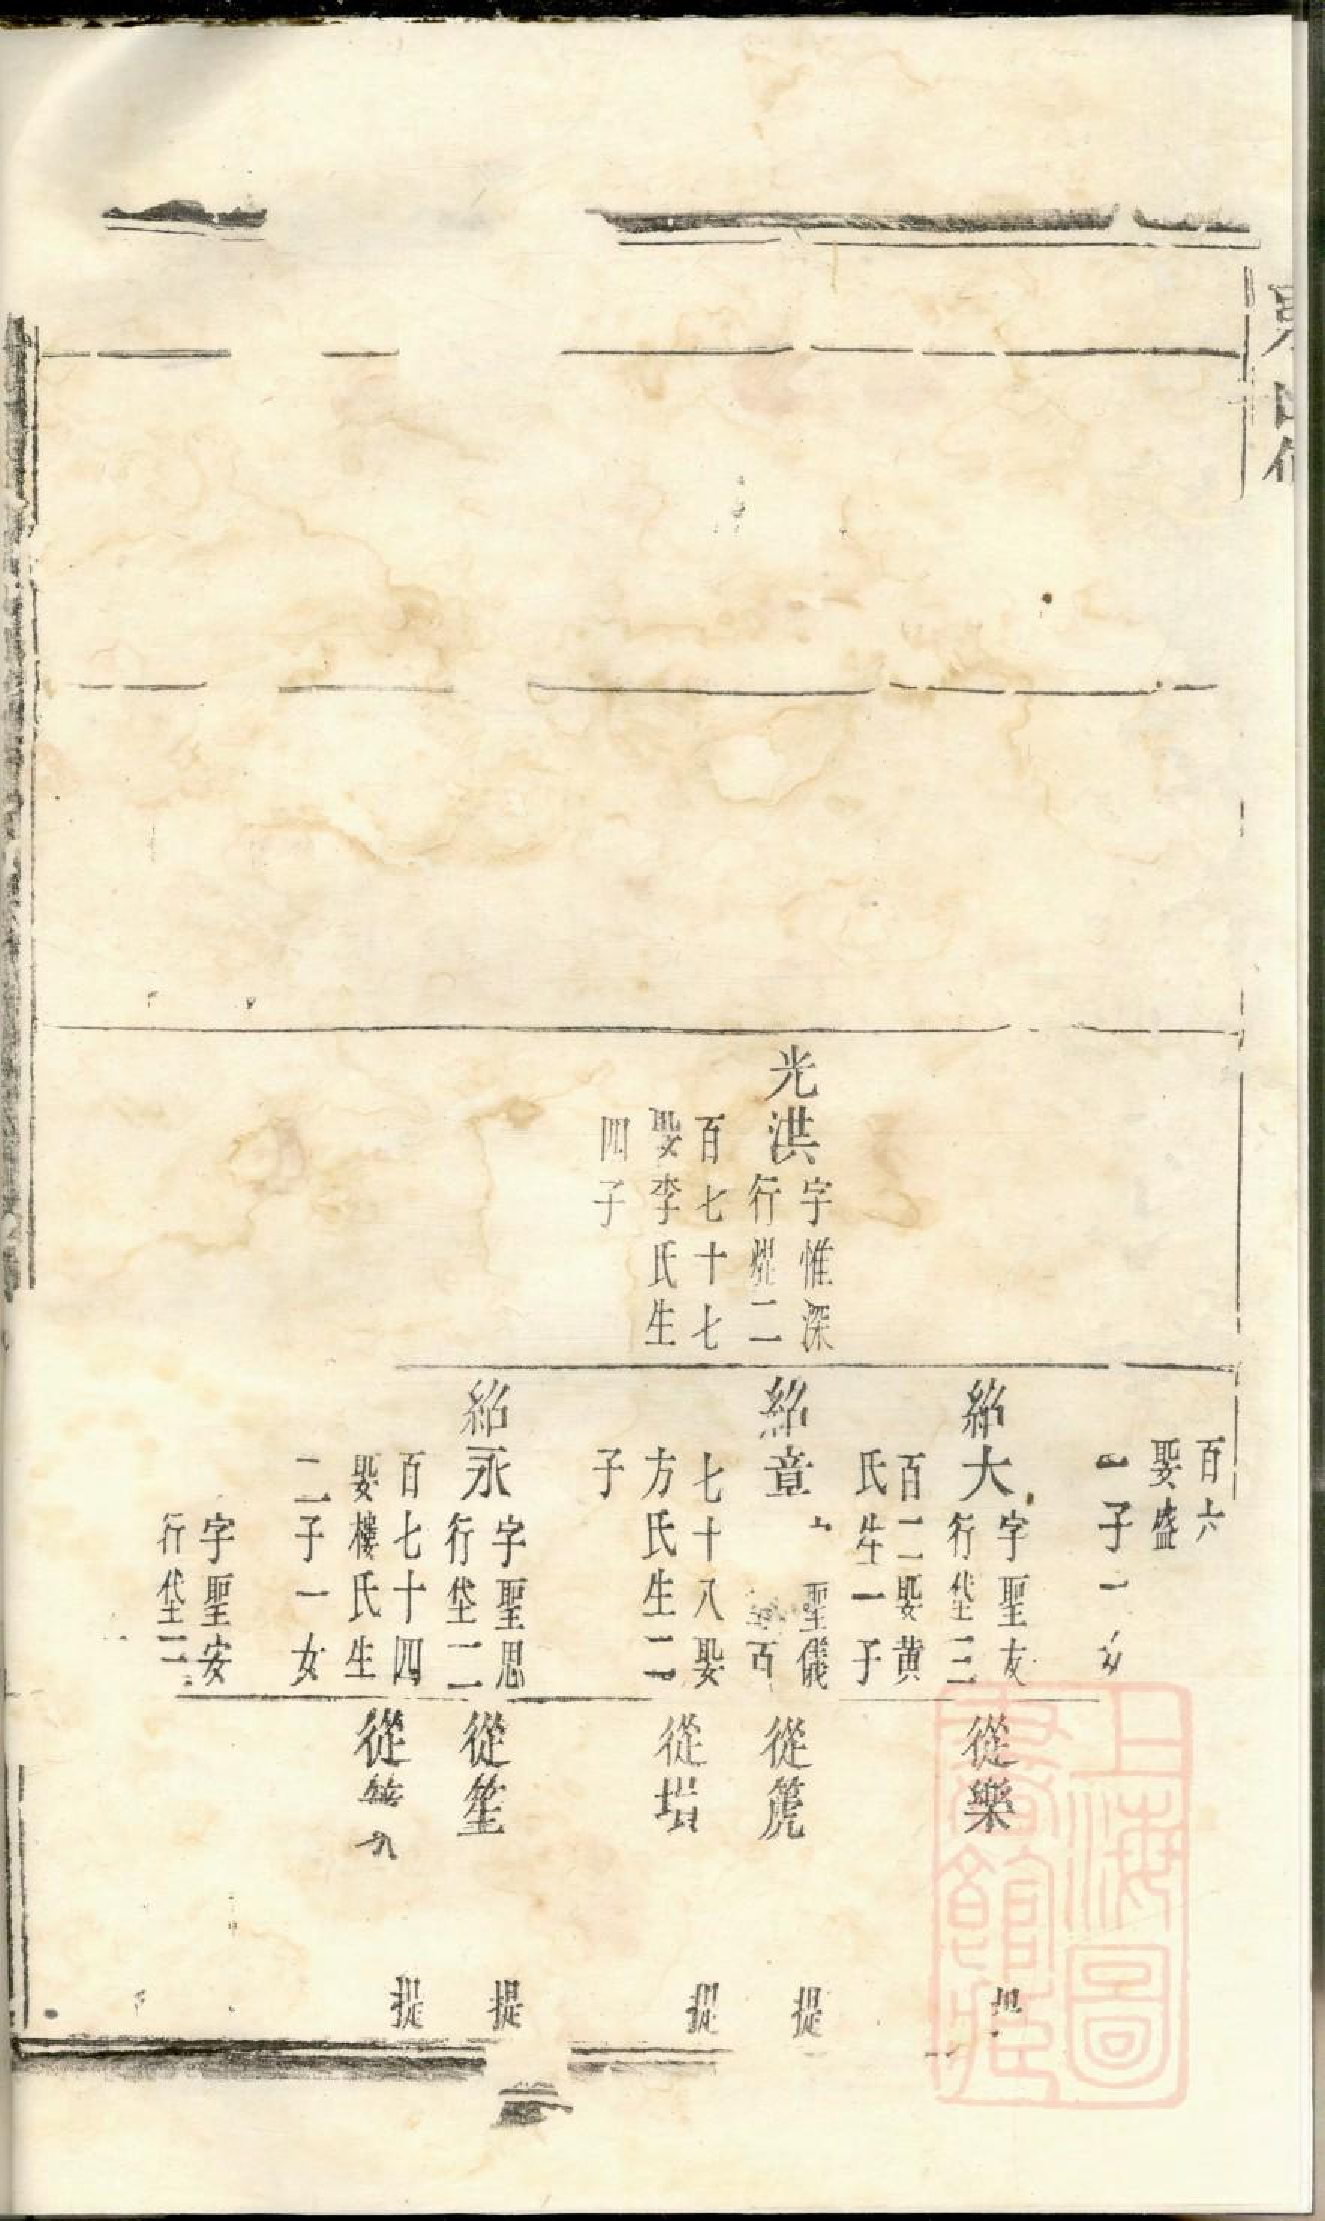 光洪
字惟深
行燿二
百七十七
娶李氏生
四子
百六
娶盛
一子一
紹大
字聖友
行垡三
百二娶黄
氏生一子
紹章
聖儀
百
七十八娶
方氏生二
子
紹永
字聖思
行垡二
百七十四
娶樓氏生
二子一女
字聖安
行垡二
從樂
從篪
提
從塤
提
從笙
提
從
提
上海圖
書館藏